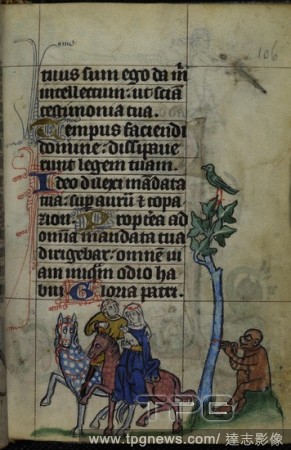 106
tuus sum ego da m̄
intellectum: ut sciā
testimonia tua.
Tempus faciendi
domine: dissipaue
runt legem tuam.
Ideo dilexi mādata
tua: sup aurū ⁊ topa
zion. Propt̾ea ad
omnia mandata tua
dirigebar: omnē ui
am iniqm̄ odio ha
bui. Gloria patri.
TPG
www.tpgnews.com/ 達志影像